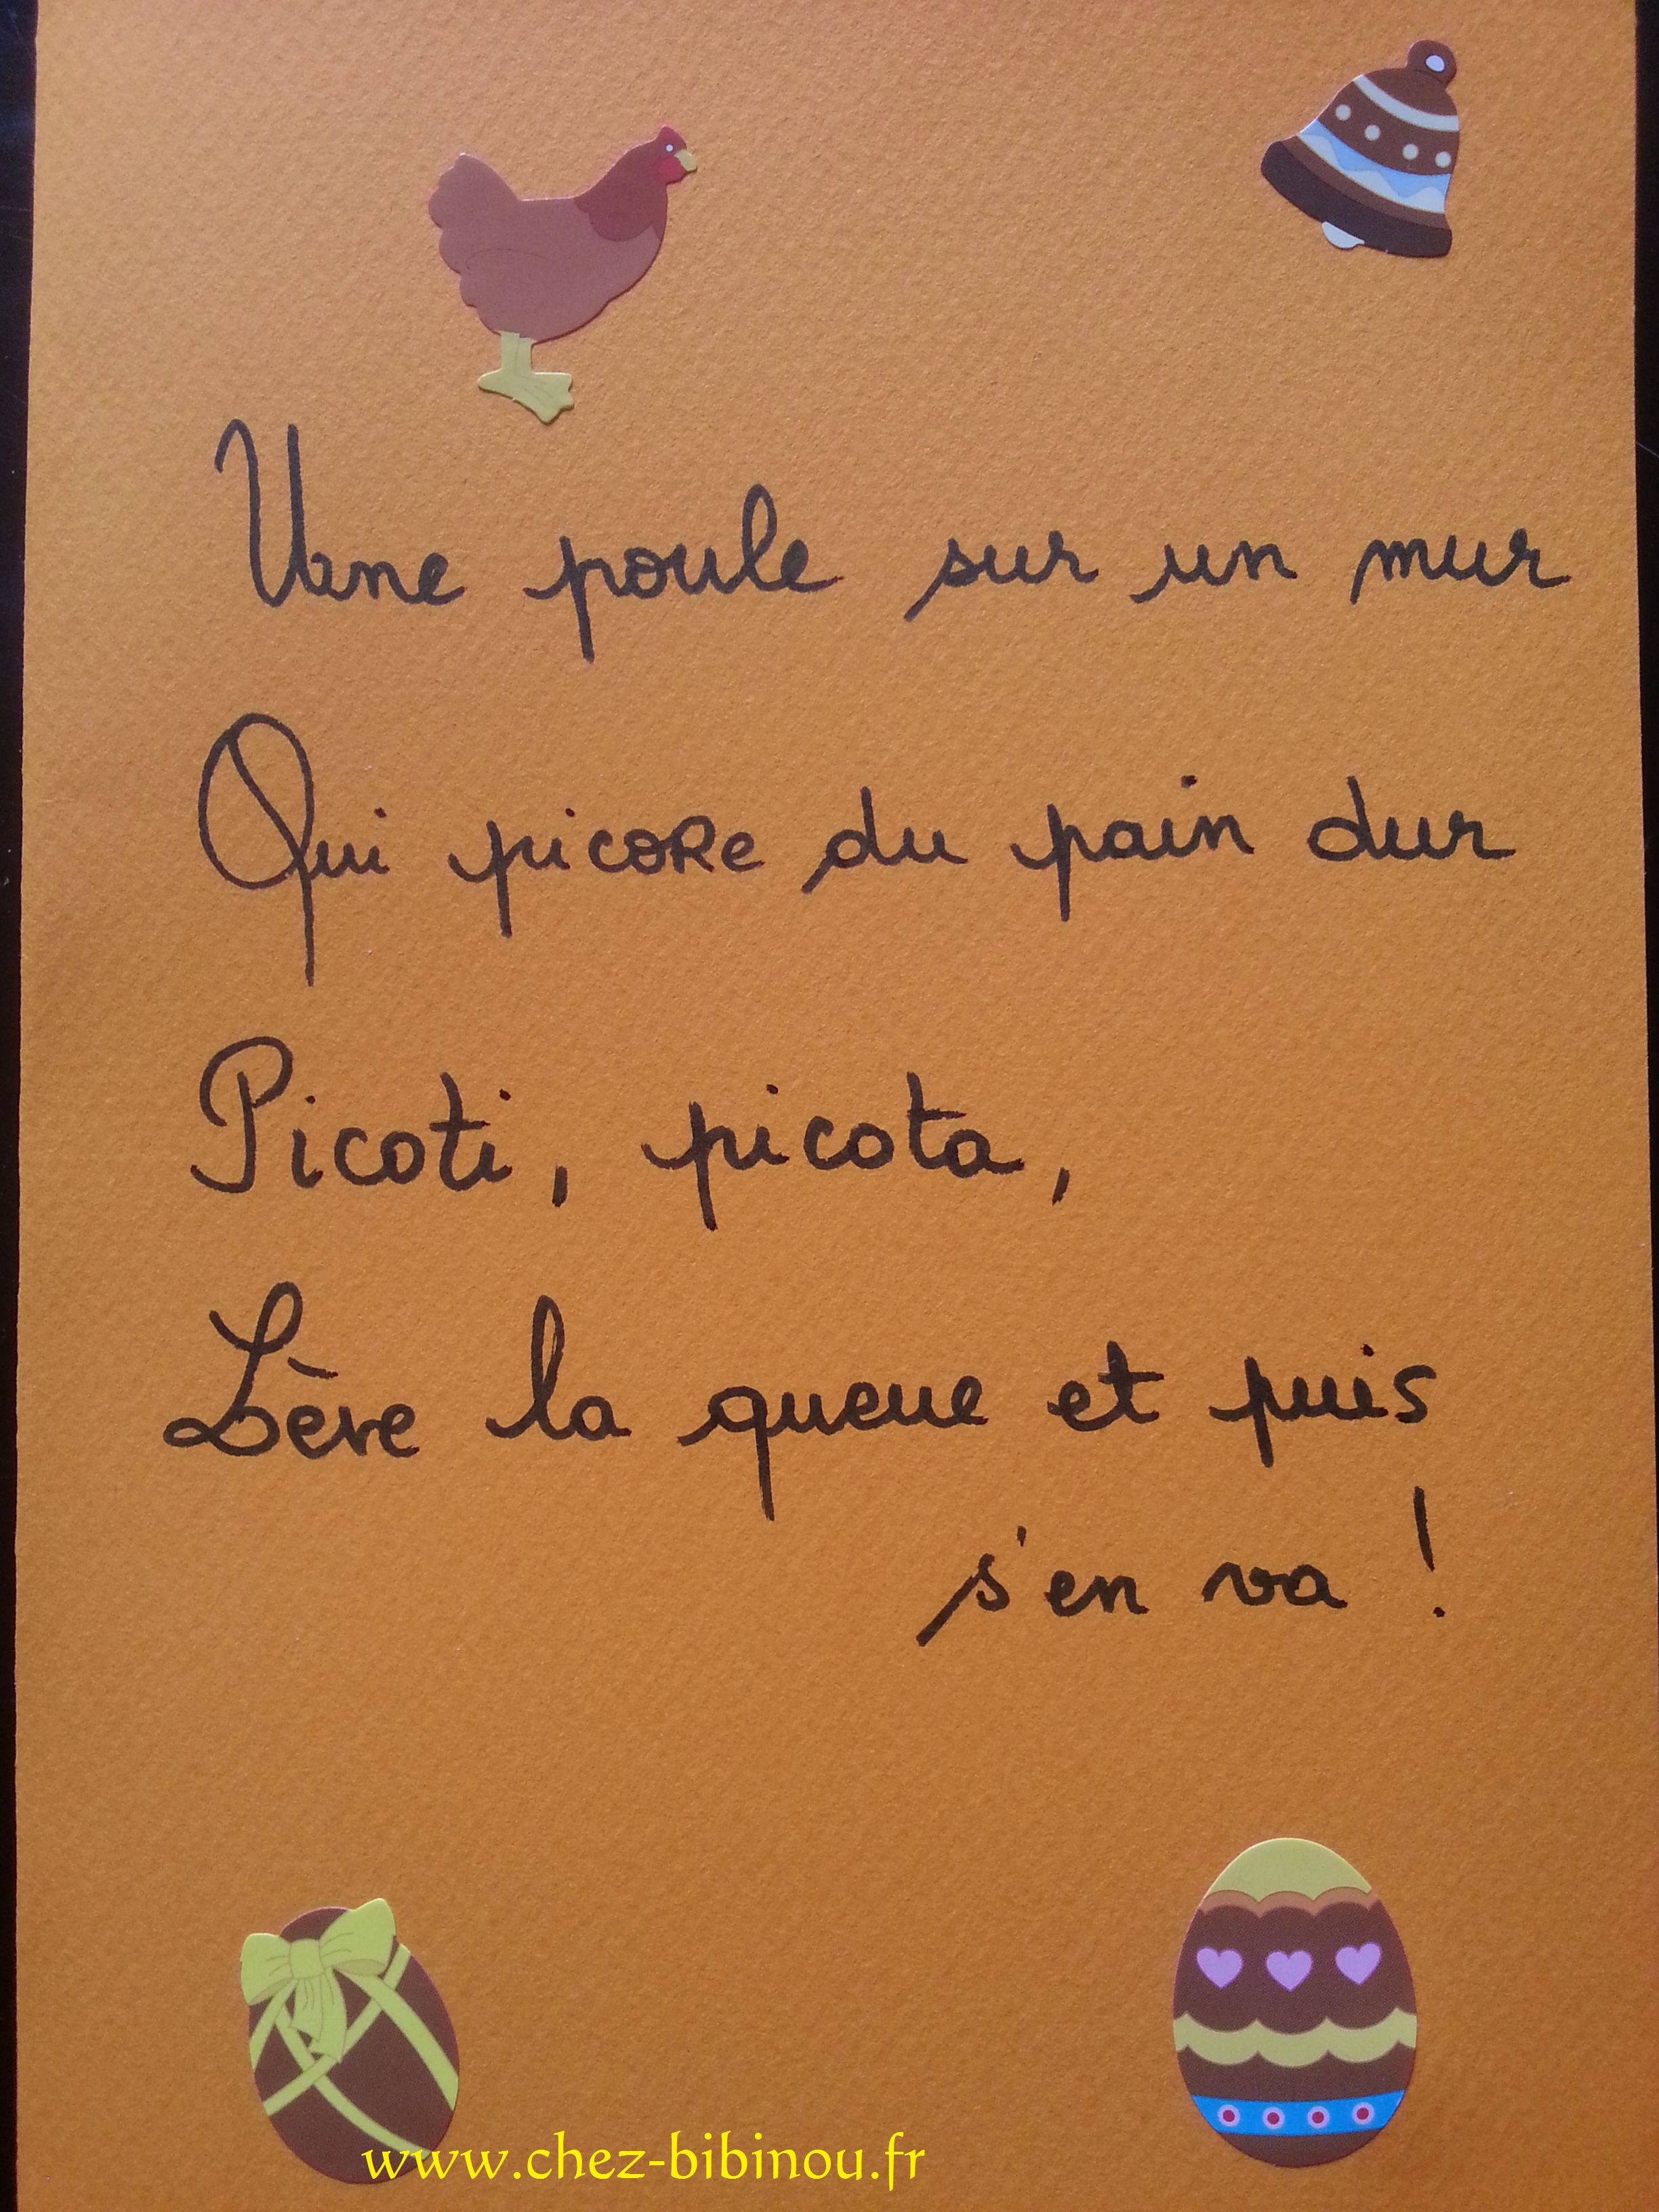 Une poule sur un mur
Qui picore du pain dur
Picoti, picota,
Lève la queue et puis
s'en va !
www.chez-bibinou.fr